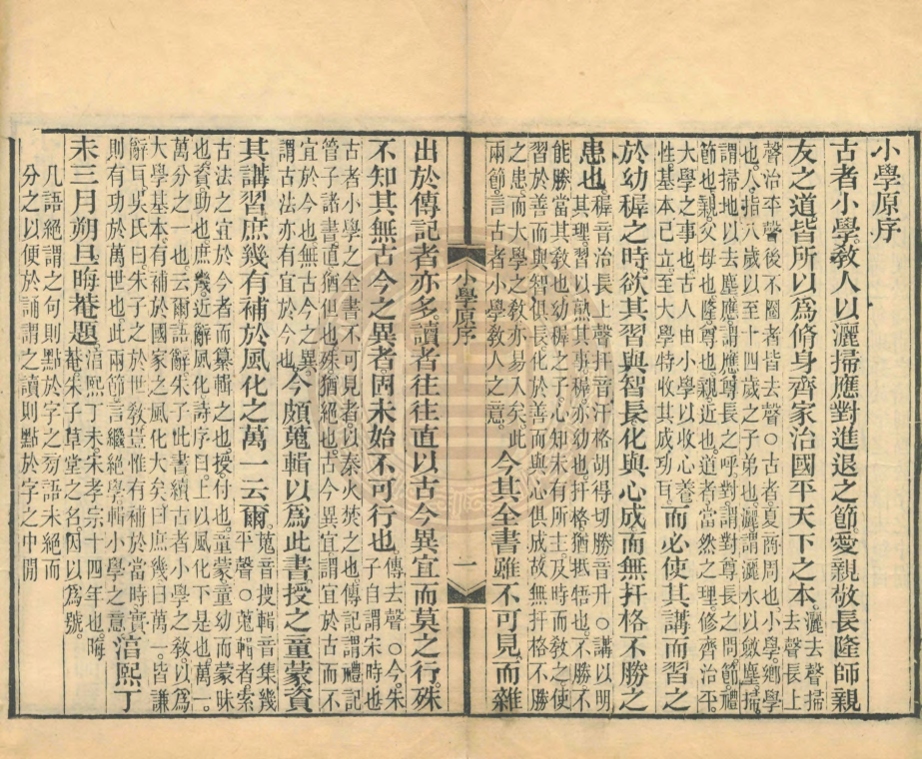 小學原序
古者小學敎人以灑掃應對進退之節愛親敬長隆師親
友之道皆所以爲脩身齊家治國平天下之本
灑去聲掃
去聲長上
聲治平聲後不圈者皆去聲○古者夏商周也小學鄉學
也人指八歲以至十四歲之子弟也灑謂灑水以斂塵掃
謂掃地以去塵應謂應尊長之呼對謂對尊長之問節禮
節也親父母也隆尊也親近也道者當然之理修齊治平
大學之事也古人由小學以收心養
性基本已立至大學特收其成功耳
而必使其講而習之
於幼穉之時欲其習與智長化與心成而無扞格不勝之
患也
穉音治長上聲扞音汗格胡得切勝音升○講以明
其理習以熟其事穉亦幼也扞格猶抵牾也不勝不
能勝當其敎也幼穉之子心知未有所主及時而敎之使
習於善而與智俱長化於善而與心俱成故無扞格不勝
之患而大學之敎亦易入矣此
兩節言古者小學敎人之意
今其全書雖不可見而雜
小學原序
一
出於傳記者亦多讀者往往直以古今異宜而莫之行殊
不知其無古今之異者固未始不可行也
傳去聲○今朱
子自謂宋時也
古者小學之全書不可見者以秦火焚之也傳記謂禮記
管子諸書直猶但也殊猶絶也古今異宜謂宜於古而不
宜於今也無古今之異
謂古法亦有宜於今也
今頗蒐輯以爲此書授之童蒙資
其講習庶幾有補於風化之萬一云爾
蒐音搜輯音集幾
平聲○蒐輯者索
古法之宜於今者而纂輯之也授付也童蒙童幼而蒙昧
也資助也庶幾近辭風化詩序曰上以風化下是也萬一
萬分之一也云爾語辭朱子此書續古者小學之敎以爲
大學基本有補於國家之風化大矣曰庶幾曰萬一皆謙
辭耳吳氏曰朱子之於世敎豈惟有補於當時實
則有功於萬世也此兩節言繼絶學輯小學之意
淳熙丁
未三月朔旦晦菴題
淳熙丁未宋孝宗十四年也晦
菴朱子草堂之名因以爲號
凡語絶謂之句則點於字之旁語未絶而
分之以便於誦謂之讀則點於字之中間